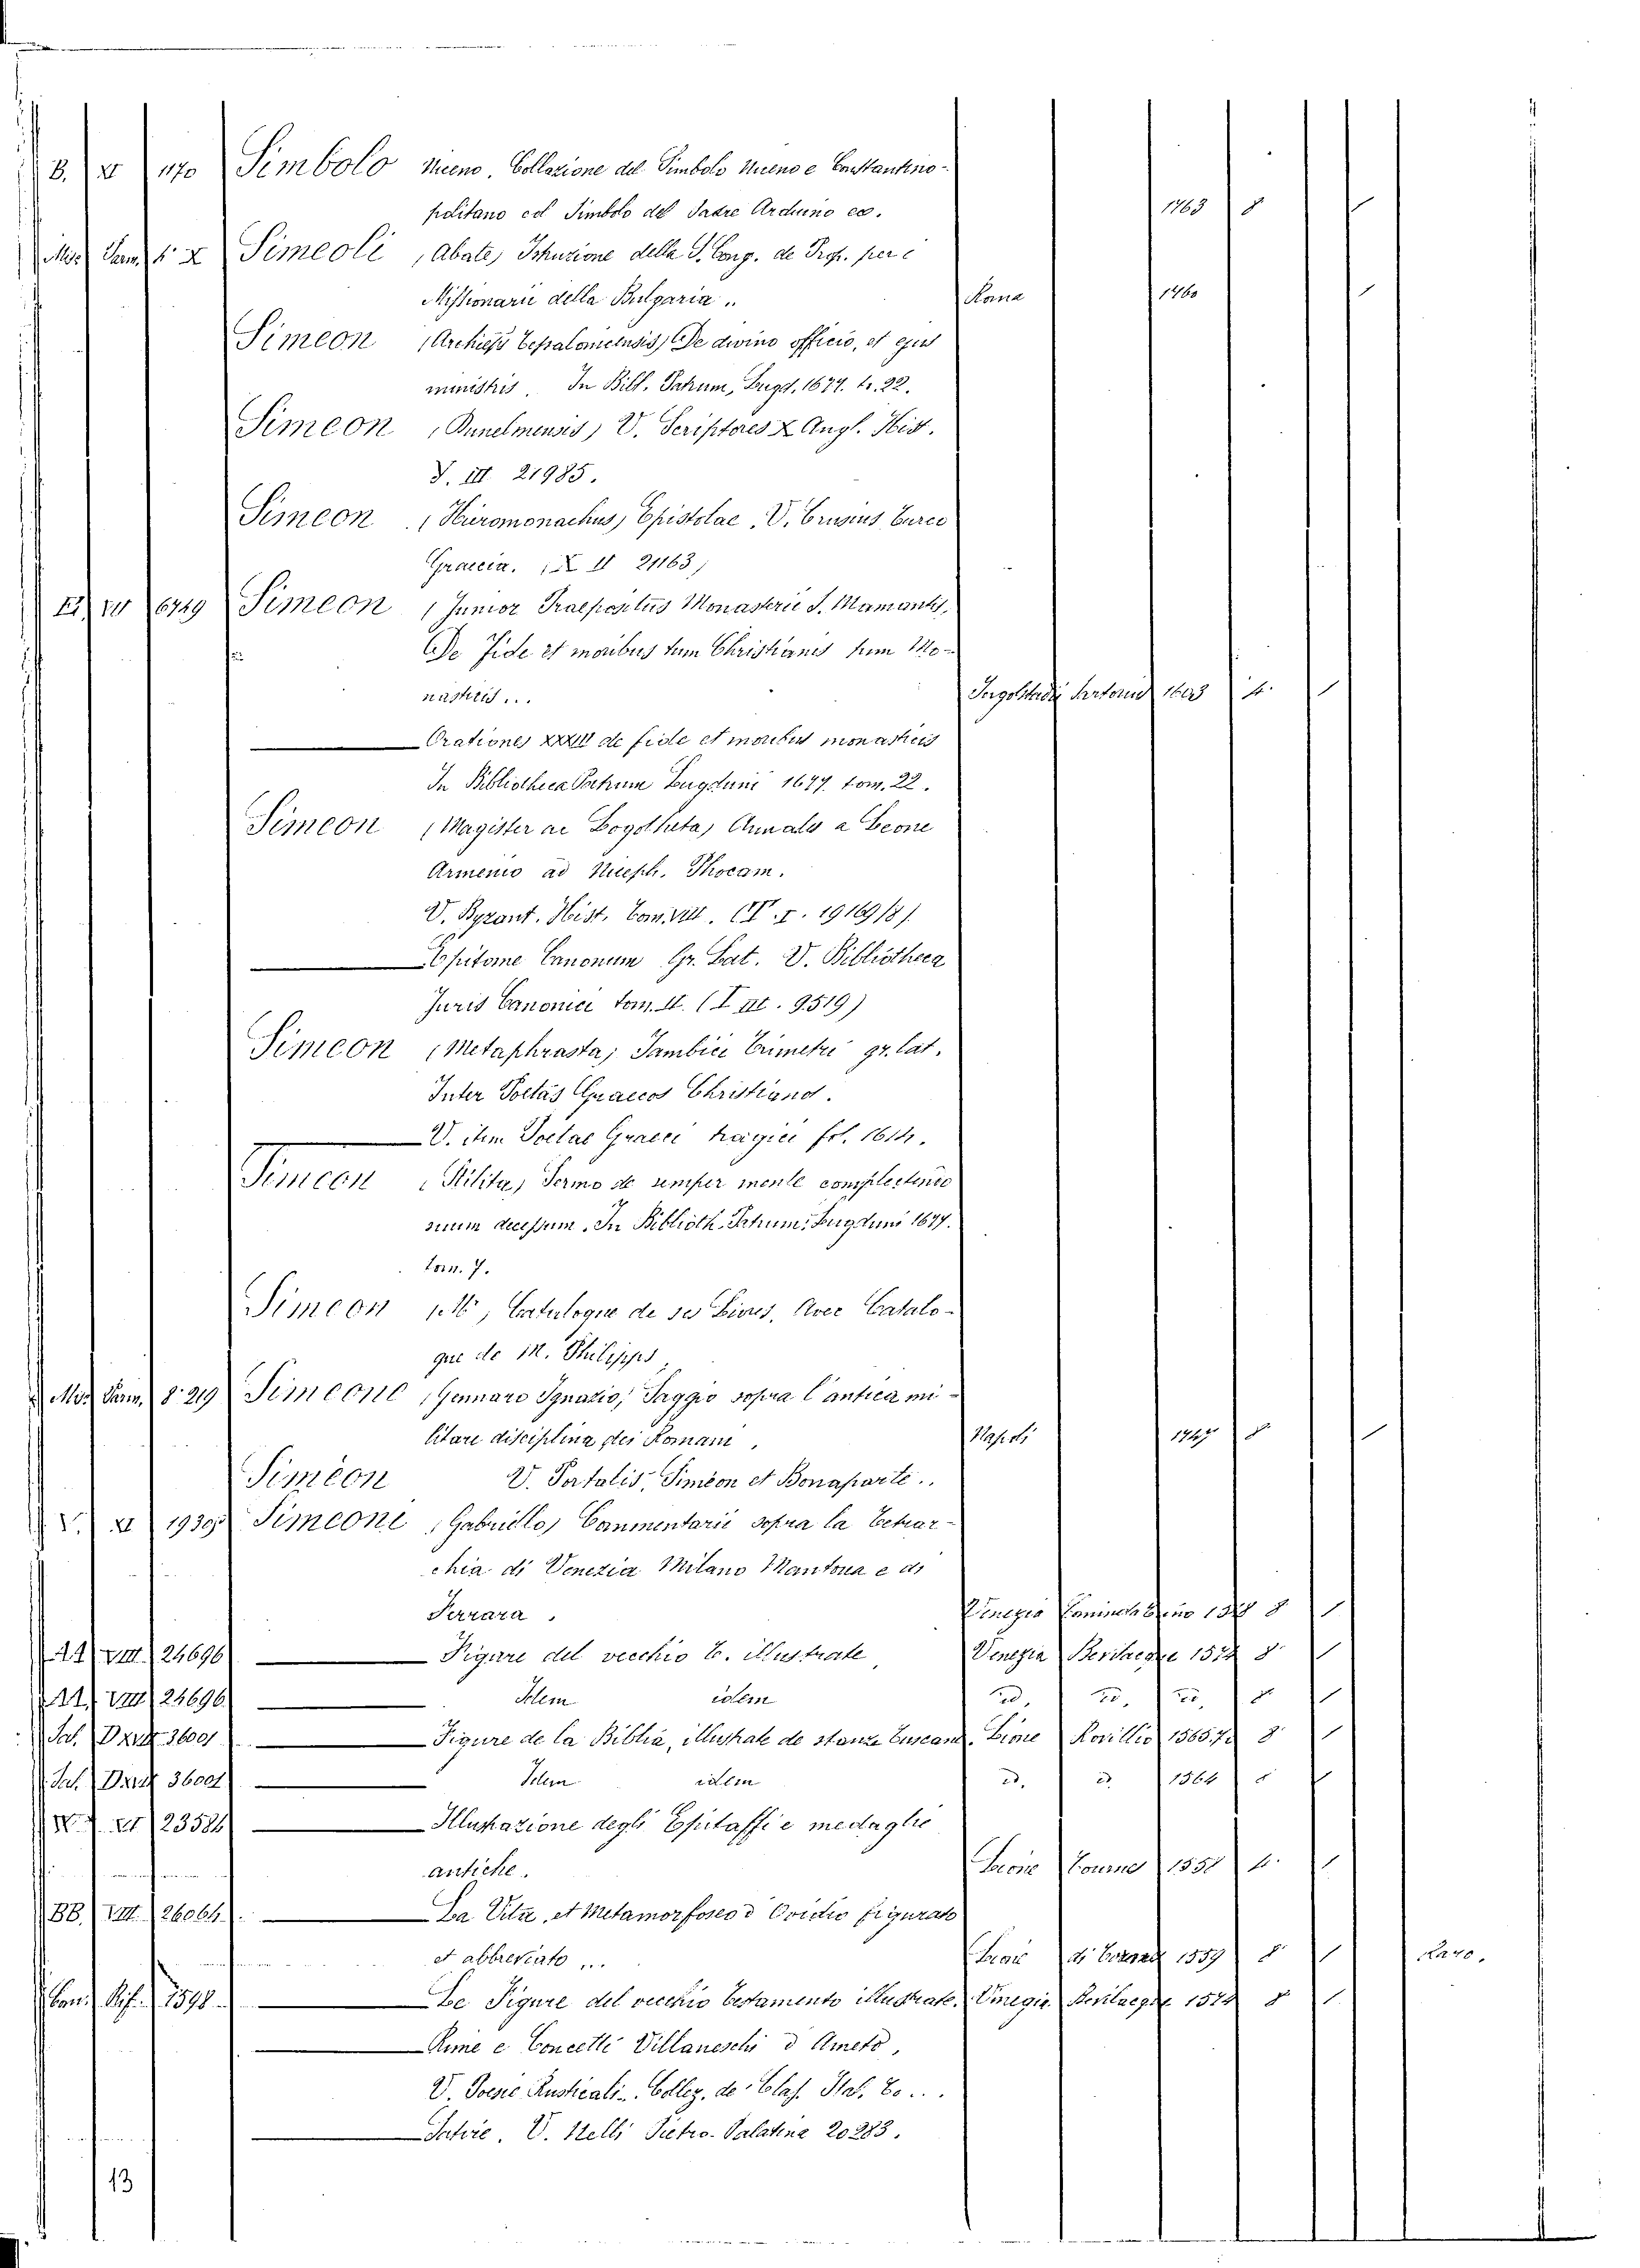 B. XI 1170 Simbolo Niceno. Collazione del Simbolo Niceno e Constantino-
politano col Simbolo del Padre Arduino ec. 1763 8
Misc. Parm. 4° X Simeoli (Abate) Istruzione della S. Cong. de Prop. per i
Missionarii della Bulgaria.. Roma 1760 1
Simeon (Archiepi Tessalonicensis) De divino officio, et ejus
ministris. In Bibl. Patrum, Lugd. 1677. t. 22.
Simeon (Dunelmensis) V. Scriptores X Angl. Hist.
V. III 21985.
Simeon (Hieromonachus) Epistolae, V. Crusius Turco
Graecia. (X II 21163)
6749 Simeon (Junior Praepositus Monasterii S. Mamantis,
De Fide et moribus tum Christianis tum Mo-
nasticis... Ingolstadii Sartorius 1603 4. 1
Orationes XXXIII de fide et moribus monasticis
In Bibliotheca Patrum Lugduni 1677. tom. 22.
Simeon (Magister ac Logotheta) Annales a Leone
Armenio ad Niceph. Phocam.
V. Byzant. Hist. Tom. VIII. (T. I. 19169/8)
Epitome Canonum Gr. Lat. V. Bibliotheca
Juris Canonici tom. II. (I III. 9519)
Simeon (Metaphrasta) Iambici Trimetri gr. lat.
Inter Poetas Graecos Christianos.
V. item Poetae Graeci tragici fol. 1614.
Simeon (Stilita) Sermo de semper mente complectendo
suum decessum. In Biblioth. Patrum. Lugduni 1677.
tom. 7.
Simeon (M.) Catalogue de ses Livres, Avec Catalo-
gue de M. Philipps
Misc. Parm. 8° 219 Simeone (Gennaro Ignazio) Saggio sopra l'antica mi-
litare disciplina dei Romani. Napoli 1747 8 1
Siméon V. Portalis, Siméon et Bonaparte..
V. XI 19395 Simeoni (Gabriello) Commentarii sopra la Tetrar-
chia di Venezia Milano Mantova e di
Ferrara. Venegia Comin da Trino 8 1
AA VIII. 24696 Figure del vecchio T. illustrate Venezia Bevilacqua 1574 8° 1
AA VIII 24696 Idem idem id. id. id. 8° 1
Sal. D XVII 36001 Figure de la Biblia, illustrate de stanze Tuscane. Lione Rovillio 1565.7. 8° 1
Sal. D XVII 36001 Idem idem id. id. 1564 8 1
XI 23584 Illustrazione degli Epitaffi e medaglie
antiche. Lione Tournes 1558 4. 1
BB. VIII 26064 La Vita, et Metamorfoseo d'Ovidio figurato
et abbreviato... Lione di Tornes 1559 8° 1 Raro.
Rif. 1598 Le Figure del vecchio testamento illustrate. Vinegia Bevilacqua 1574 8 1
Rime e Concetti Villaneschi d'Ameto,
V. Poesie Rusticali... Collez. de' Clas. Ital. To...
Satire. V. Nelli Pietro. Palatina 20283.
13